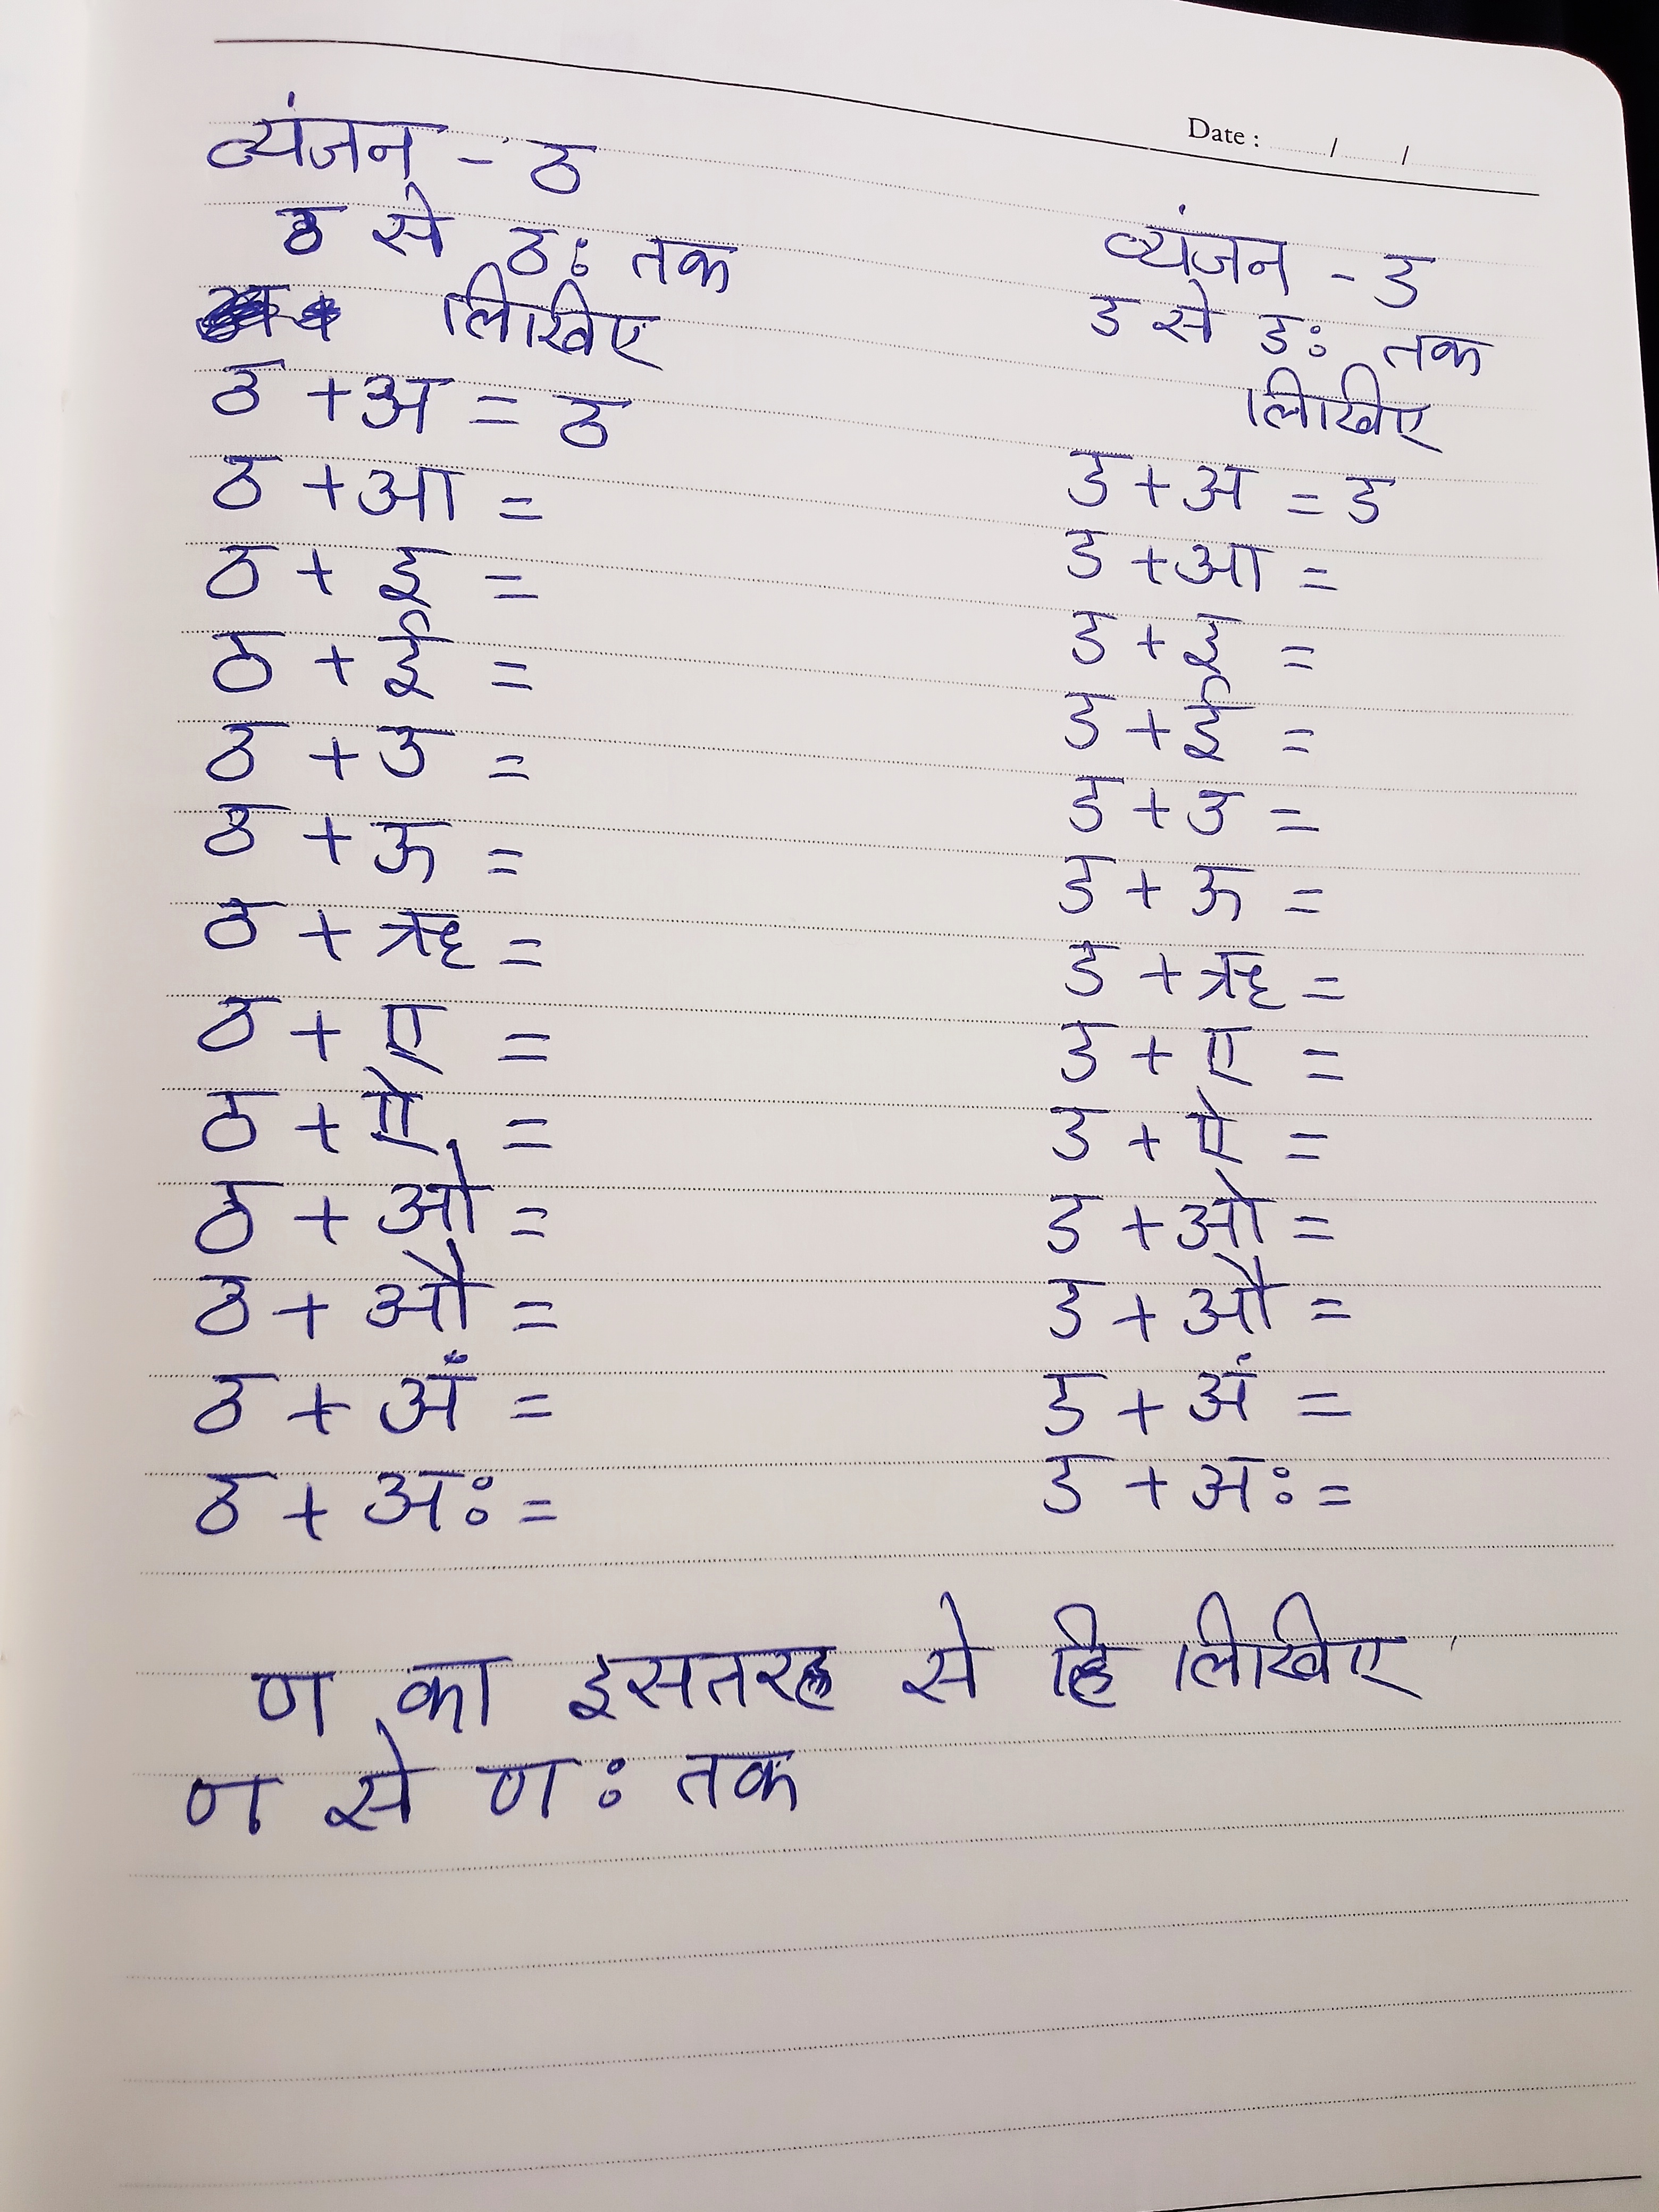 Date : / /
व्यंजन - ठ
ठ से ठः तक
लिखिए
ठ + अ = ठ
ठ + आ =
ठ + इ =
ठ + ई =
ठ + उ =
ठ + ऊ =
ठ + ऋ =
ठ + ए =
ठ + ऐ =
ठ + ओ =
ठ + औ =
ठ + अं =
ठ + अः =
व्यंजन - ड
ड से डः तक
लिखिए
ड + अ = ड
ड + आ =
ड + इ =
ड + ई =
ड + उ =
ड + ऊ =
ड + ऋ =
ड + ए =
ड + ऐ =
ड + ओ =
ड + औ =
ड + अं =
ड + अः =
ण का इसतरह से हि लिखिए
ण से णः तक